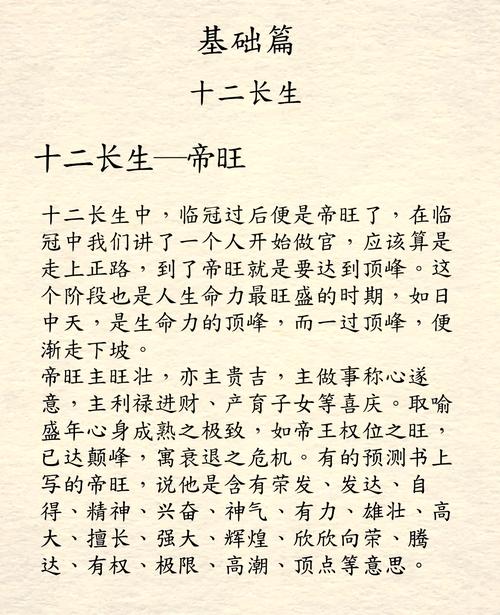 基础篇
十二长生
十二长生—帝旺
十二长生中，临冠过后便是帝旺了，在临
冠中我们讲了一个人开始做官，应该算是
走上正路，到了帝旺就是要达到顶峰。这
个阶段也是人生命力最旺盛的时期，如日
中天，是生命力的顶峰，而一过顶峰，便
渐走下坡。
帝旺主旺壮，亦主贵吉，主做事称心遂
意，主利禄进财、产育子女等喜庆。取喻
盛年心身成熟之极致，如帝王权位之旺，
已达颠峰，寓衰退之危机。有的预测书上
写的帝旺，说他是含有荣发、发达、自
得、精神、兴奋、神气、有力、雄壮、高
大、擅长、强大、辉煌、欣欣向荣、腾
达、有权、极限、高潮、顶点等意思。